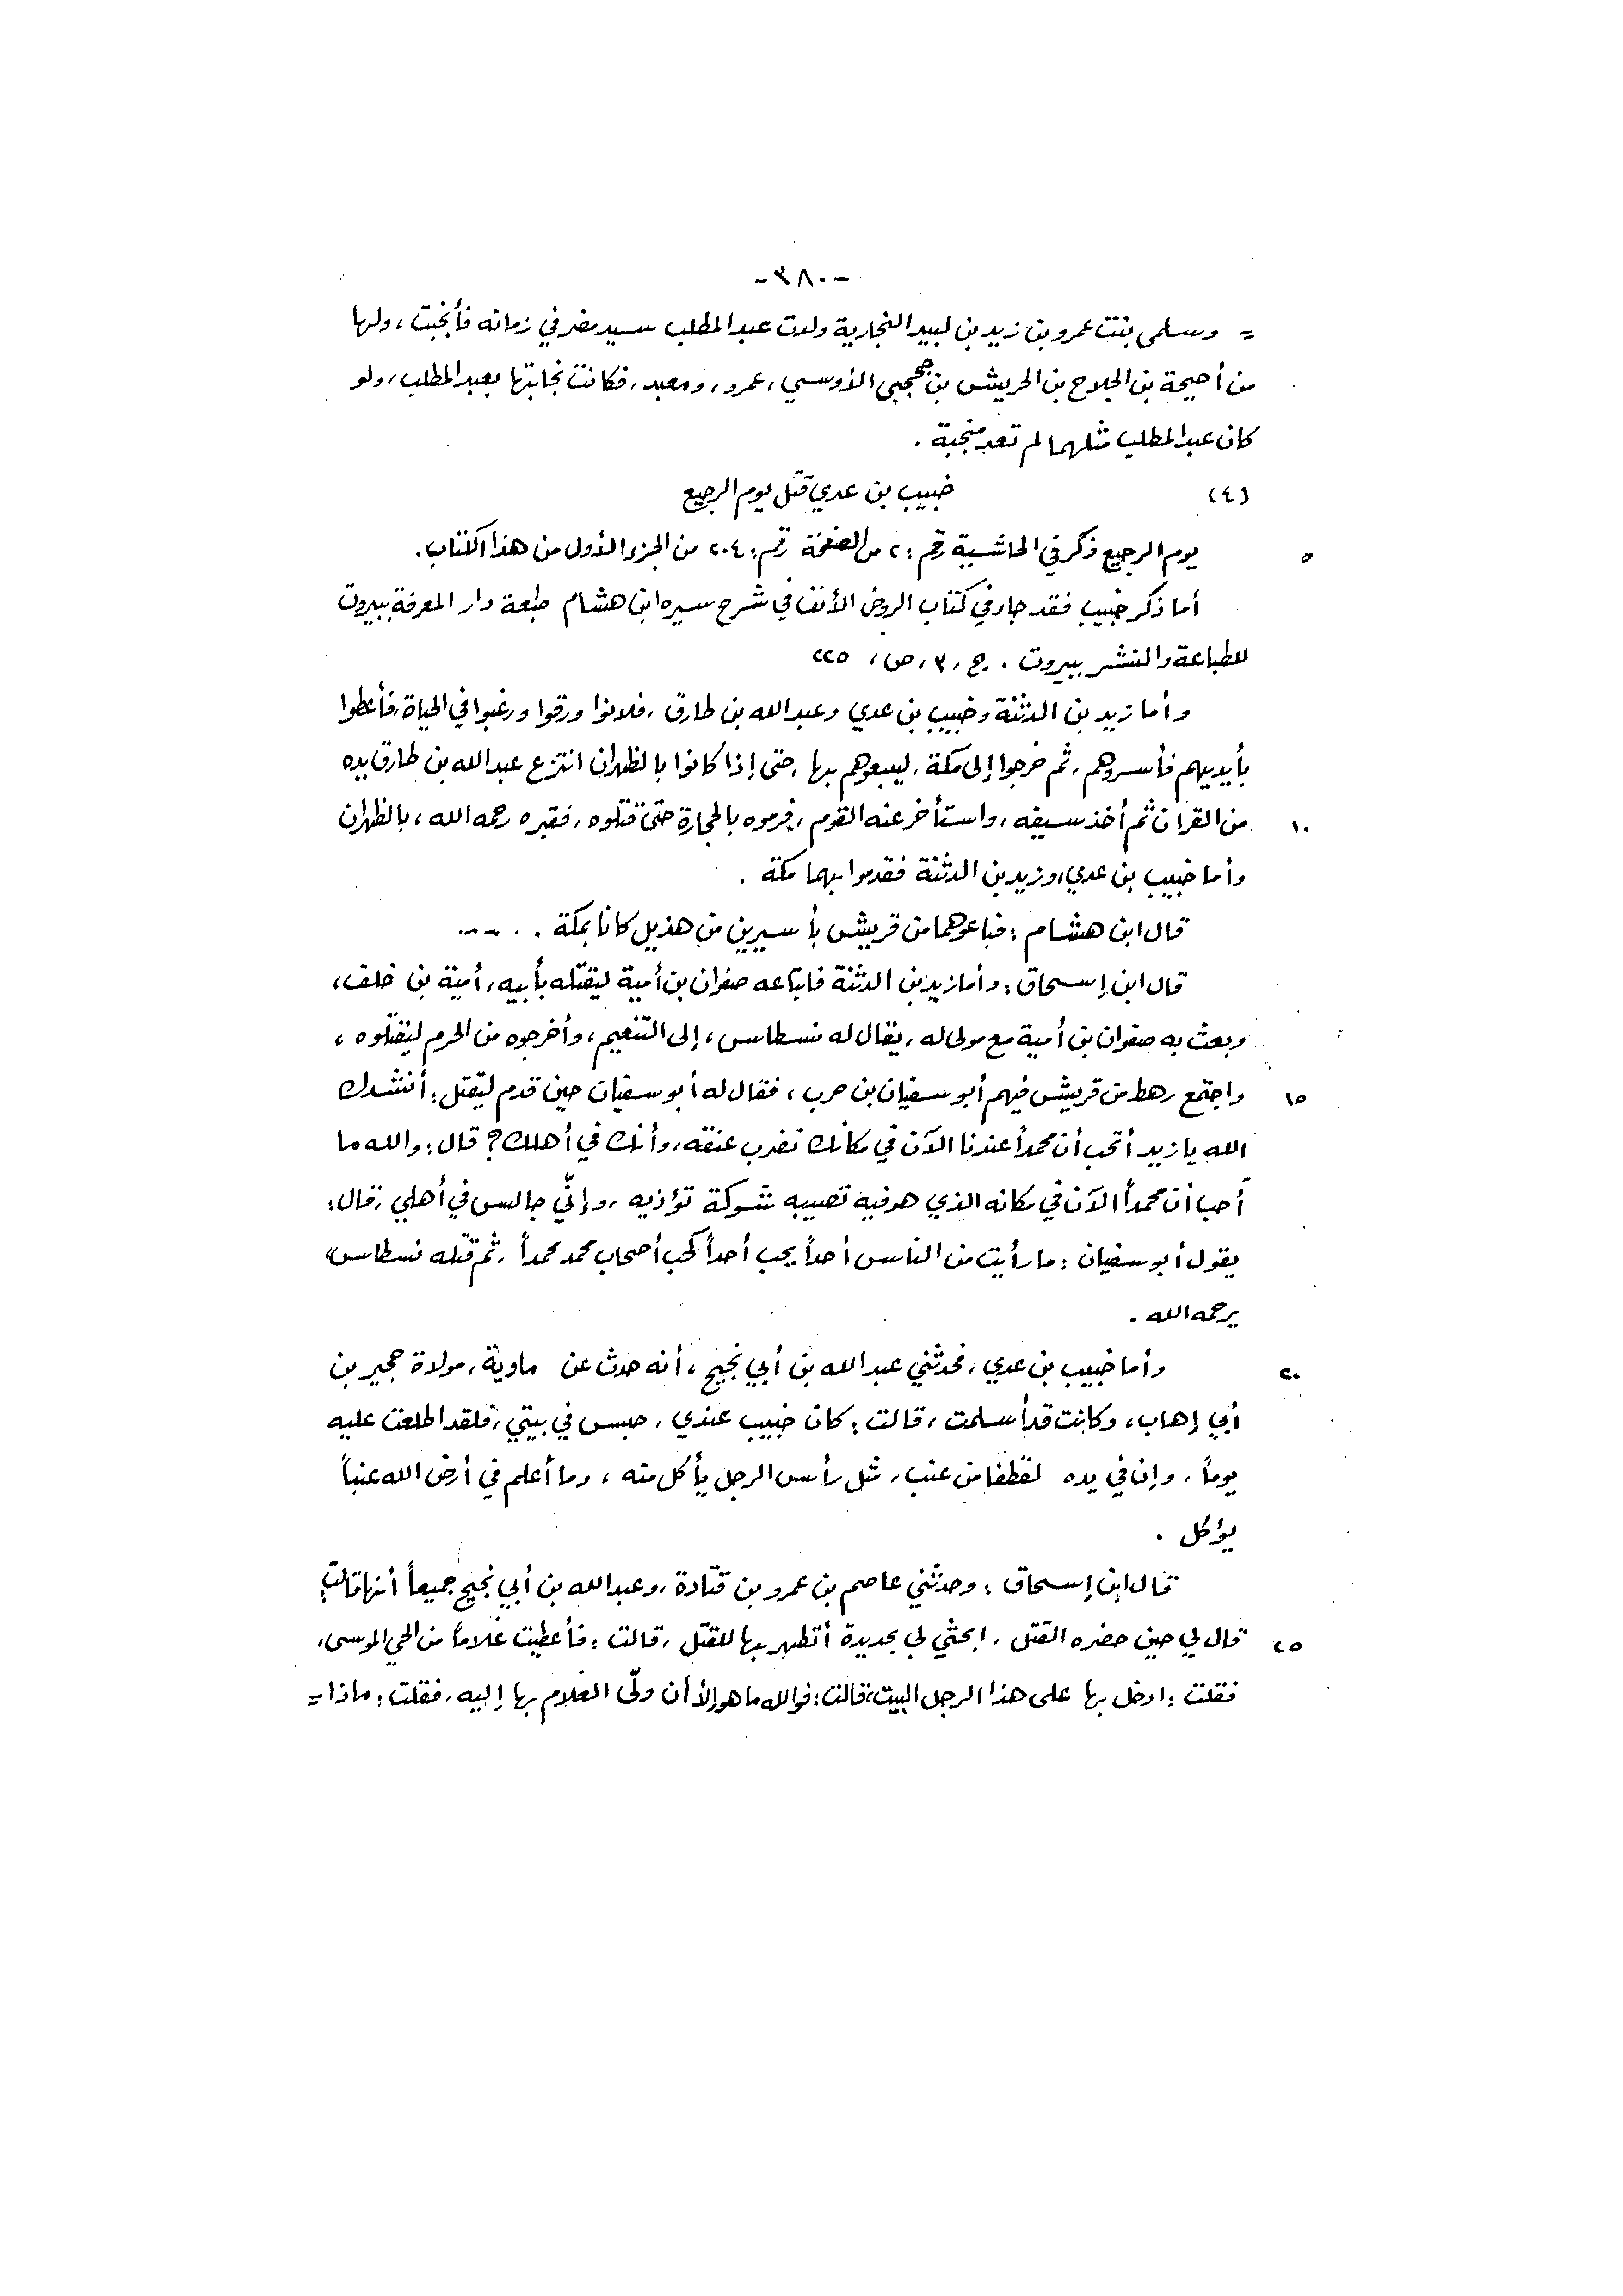 -٣٨٠-
= وسلمى بنت عمرو بن زيد بن لبيد النجارية ولدت عبد المطلب سيد مضر في زمانه فأنجبت، ولها
من أحيحة بن الجلاح بن الحريش بن جحجبى الأوسي، عمرو، ومعبد، فكانت نجابتها بعبد المطلب، ولو
كان عبد المطلب مثلهما لم تعد منجبة .
(٤) خبيب بن عدي قتل يوم الرجيع
٥ يوم الرجيع ذكر في الحاشية رقم: ٢ من الصفحة رقم: ٢٠٤ من الجزء الأول من هذا الكتاب.
أما ذكر خبيب فقد جاء في كتاب الروض الأنف في شرح سيره ابن هشام طبعة دار المعرفة ببيروت
للطباعة والنشر ببيروت . ج، ٣، ص، ٢٢٥
وأما زيد بن الدثنة وخبيب بن عدي وعبد الله بن طارق، فلانوا ورقوا ورغبوا في الحياة، فأعطوا
بأيديهم فأسروهم، ثم خرجوا إلى مكة، ليبيعوهم بها، حتى إذا كانوا بالظهران انتزع عبد الله بن طارق يده
١٠ من القران ثم أخذ سيفه، واستأخر عنه القوم، فرموه بالحجارة حتى قتلوه، فقبره رحمه الله، بالظهران
وأما خبيب بن عدي، وزيد بن الدثنة فقدموا بهما مكة .
قال ابن هشام: فباعوهما من قريش بأسيرين من هذيل كانا بمكة . .....
قال ابن إسحاق: وأما زيد بن الدثنة فابتاعه صفوان بن أمية ليقتله بأبيه، أمية بن خلف،
وبعث به صفوان بن أمية مع مولى له، يقال له نسطاس، إلى التنعيم، وأخرجوه من الحرم ليقتلوه،
١٥ واجتمع رهط من قريش فيهم أبو سفيان بن حرب، فقال له أبو سفيان حين قدم ليقتل: أنشدك
الله يا زيد أتحب أن محمداً عندنا الآن في مكانك تضرب عنقه، وأنك في أهلك؟ قال: والله ما
أحب أن محمداً الآن في مكانه الذي هو فيه تصيبه شوكة تؤذيه، وإنّي جالس في أهلي، قال:
يقول أبو سفيان: ما رأيت من الناس أحداً يحب أحداً كحب أصحاب محمد محمداً، ثم قتله نسطاس،
يرحمه الله .
٢٠ وأما خبيب بن عدي، فحدثني عبد الله بن أبي نجيح، أنه حدث عن ماوية، مولاة حجير بن
أبي إهاب، وكانت قد أسلمت، قالت: كان خبيب عندي، حبس في بيتي، فلقد اطلعت عليه
يوماً، وإن في يده لقطفا من عنب، مثل رأس الرجل يأكل منه، وما أعلم في أرض الله عنباً
يؤكل .
قال ابن إسحاق: وحدثني عاصم بن عمرو بن قتادة، وعبد الله بن أبي نجيح جميعاً أنها قالت:
٢٥ قال لي حين حضره القتل، ابعثي لي بحديدة أتطهر بها للقتل، قالت: فأعطيت غلاماً من الحي الموسى،
فقلت: ادخل بها على هذا الرجل البيت، قالت: فوالله ما هو إلا أن ولّى الغلام بها إليه، فقلت: ماذا =